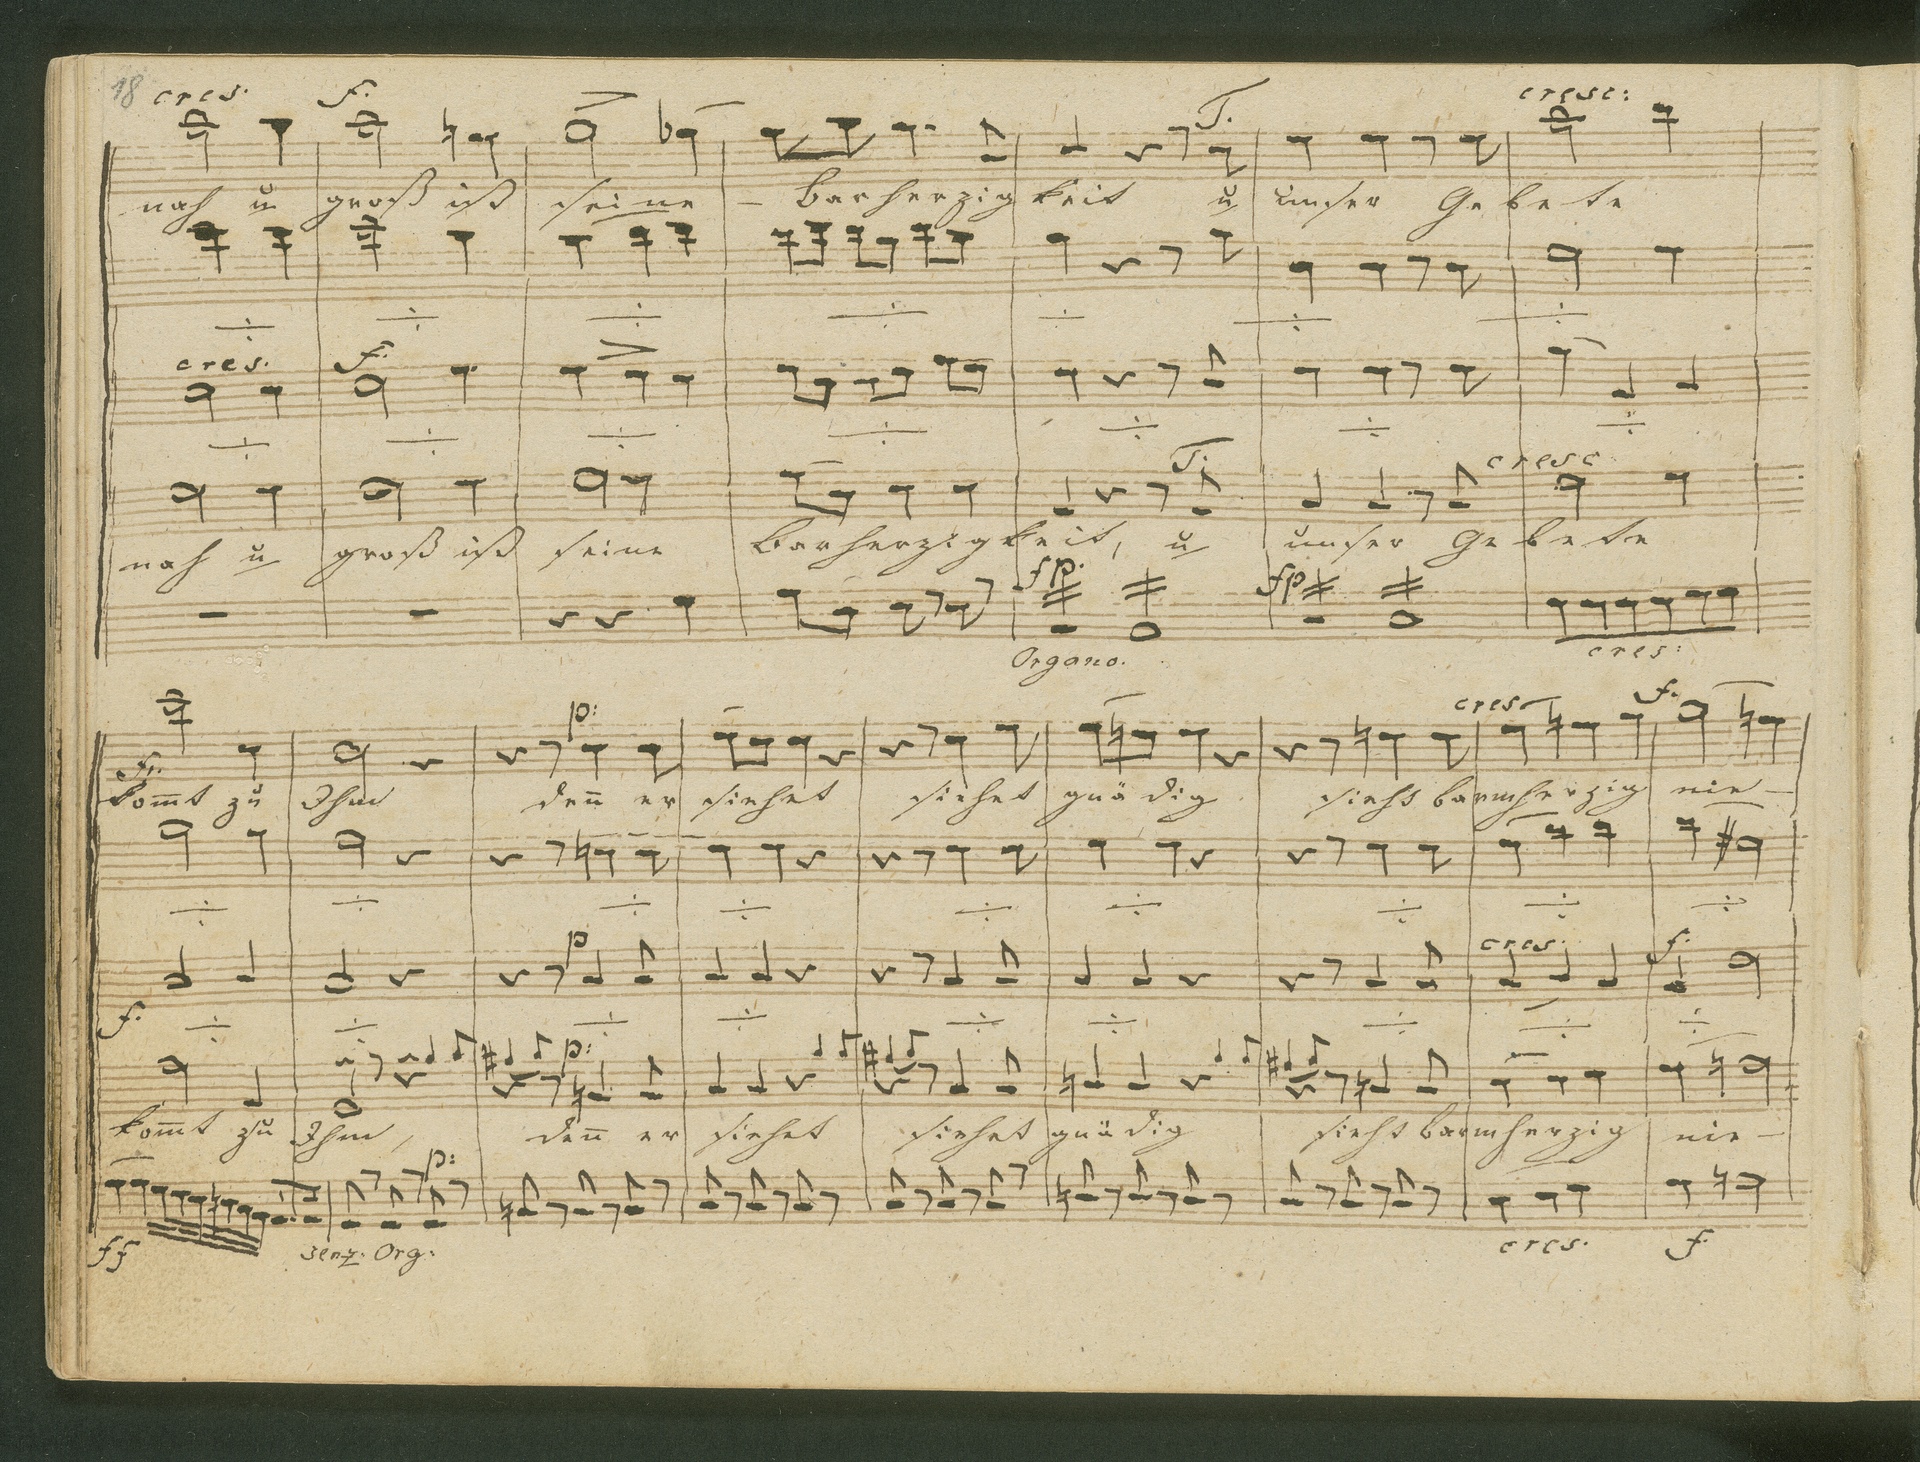 18 cres. f. cresc:
T.
nah u groß ist seine - Barherzigkeit u unser Gebete
cres. f.
T. cresc
nah u groß ist seine Barherzigkeit, u unser Gebete
fp. fp
Organo. cres:
p: cres f.
f.
kom̄t zu Ihm den̄ er siehet siehet gnädig sieht barmherzig nie-
p cres. f.
f.
p:
kom̄t zu Ihm, den̄ er siehet siehet gnädig sieht barmherzig nie-
p:
ff senz. Org: cres. f.